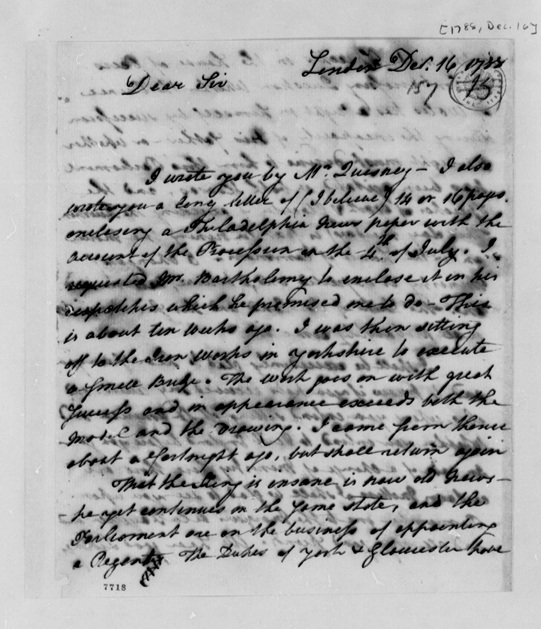 [1788, Dec. 16]
London Dec. 16 1788
157
Dear Sir
I wrote you by Mr. Quesney - I also
wrote you a long letter of (I believe) 14 or 16 pages.
enclosing a Philadelphia News paper with the
account of the Procession on the 4th of July. I
requested Mr. Bartholemy to enclose it in his
dispatches which he promised me to do - This
is about ten weeks ago. I was then setting
off to the Iron Works in Yorkshire to execute
a Bridge. The work goes on with great
Success and in appearance exceeds both the
Model and the Drawing. I came from thence
about a fortnight ago, but shall return again
That the King is insane is now old News -
he yet continues in the same state, and the
Parliament are on the business of appointing
a Regent. The Dukes of York & Gloucester have
7718